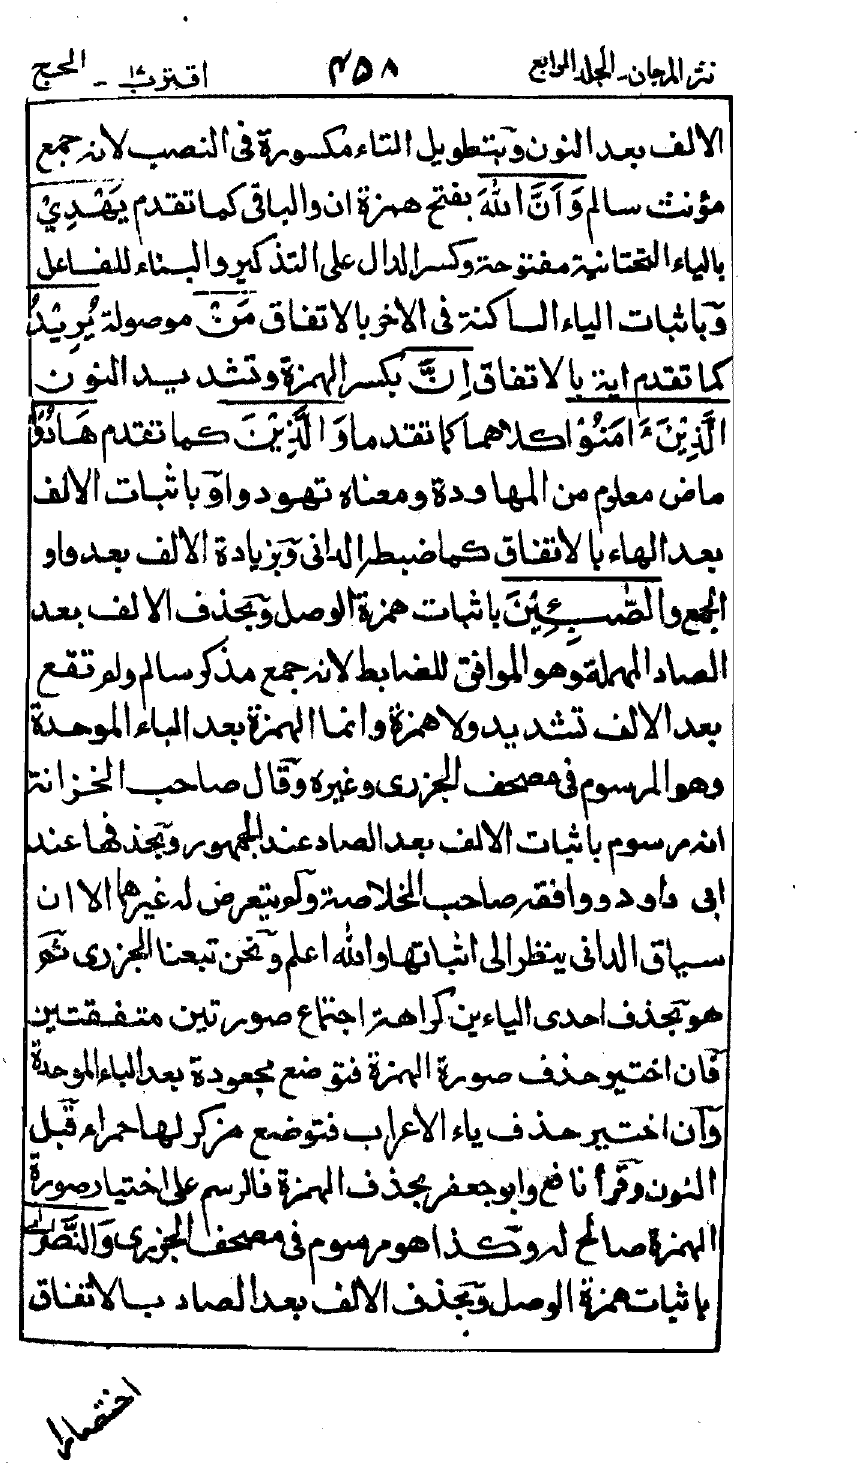 نثر المرجان ـ المجلد الرابع ۴۵۸ اقترب ۱۷ ـ الحج
الالف بعد النون وبتطويل التاء مكسورة فى النصب لانه جمع
مؤنث سالم وَاَنَّ اللّٰهَ بفتح همزة ان والباقى كما تقدم يَهْدِيْ
بالياء التحتانية مفتوحة وكسر الدال على التذكير والبناء للفاعل
وباثبات الياء الساكنة فى الاخر بالاتفاق مَنْ موصولة يُرِيْدُ
كما تقدم اية بالاتفاق اِنَّ بكسر الهمزة وتشديد النون
الَّذِيْنَ ءَامَنُوْا كلاهما كما تقدما وَالَّذِيْنَ كما تقدم هَادُوْا
ماض معلوم من المهاودة ومعناه تهودوا وباثبات الالف
بعد الهاء بالاتفاق كما ضبطه الدانى وبزيادة الالف بعد واو
الجمع والصّٰبِـِٔيْنَ باثبات همزة الوصل وبحذف الالف بعد
الصاد المهملة وهو الموافق للضابط لانه جمع مذكر سالم ولم تقع
بعد الالف تشديد ولا همزة وانما الهمزة بعد الباء الموحدة
وهو المرسوم فى مصحف الجزرى وغيره وقال صاحب الخزانة
انه مرسوم باثبات الالف بعد الصاد عند الجمهور وبحذفها عند
ابى داود ووافقه صاحب الخلاصة ولم يتعرض له غيرهما الا ان
سياق الدانى ينظر الى اثباتها والله اعلم ونحن تبعنا الجزرى ثم
هو بحذف احدى الياءين كراهة اجتماع صورتين متفقتين
فان اختير حذف صورة الهمزة فتوضع مجعودة بعد الباء الموحدة
وان اختير حذف ياء الاعراب فتوضع مركز لها حمراء قبل
النون وقرأ نافع وابو جعفر بحذف الهمزة فالرسم على اختيار صورة
الهمزة صالح له وكذا هو مرسوم فى مصحف الجزرى وَالنَّصٰرٰى
باثبات همزة الوصل وبحذف الالف بعد الصاد بالاتفاق
اختصارا